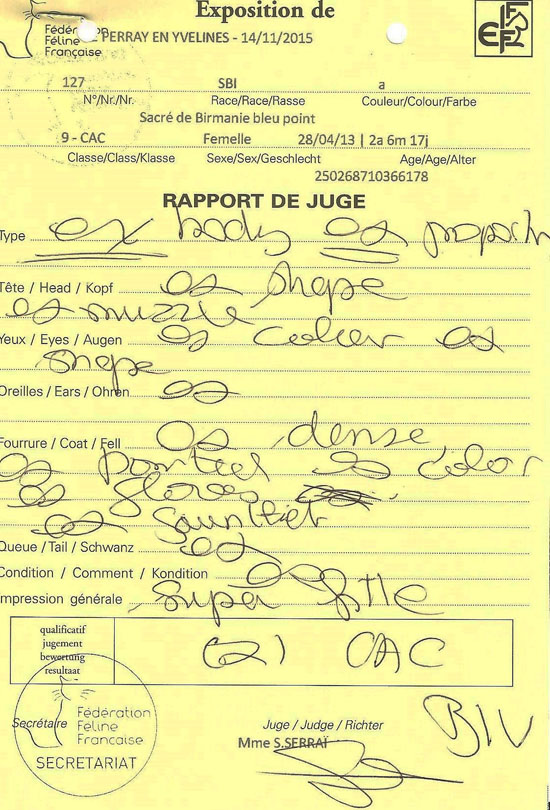 Exposition de
Fédération
Féline
Française
PERRAY EN YVELINES - 14/11/2015
FFF
127 SBI a
N°/Nr./Nr. Race/Race/Rasse Couleur/Colour/Farbe
Sacré de Birmanie bleu point
9 - CAC Femelle 28/04/13 | 2a 6m 17j
Classe/Class/Klasse Sexe/Sex/Geschlecht Age/Age/Alter
250268710366178
RAPPORT DE JUGE
Type ex body ex
Tête / Head / Kopf ex shape
ex muzzle
Yeux / Eyes / Augen ex color ex
shape
Oreilles / Ears / Ohren ex
Fourrure / Coat / Fell ex dense
ex pointed ex color
ex gloves
ex
Queue / Tail / Schwanz ex
Condition / Comment / Kondition ex
Impression générale super
qualificatif
jugement
bewertung
resultaat
CAC
BIV
Secrétaire
Fédération
Féline
Française
SECRETARIAT
Juge / Judge / Richter
Mme S.SERRAÏ